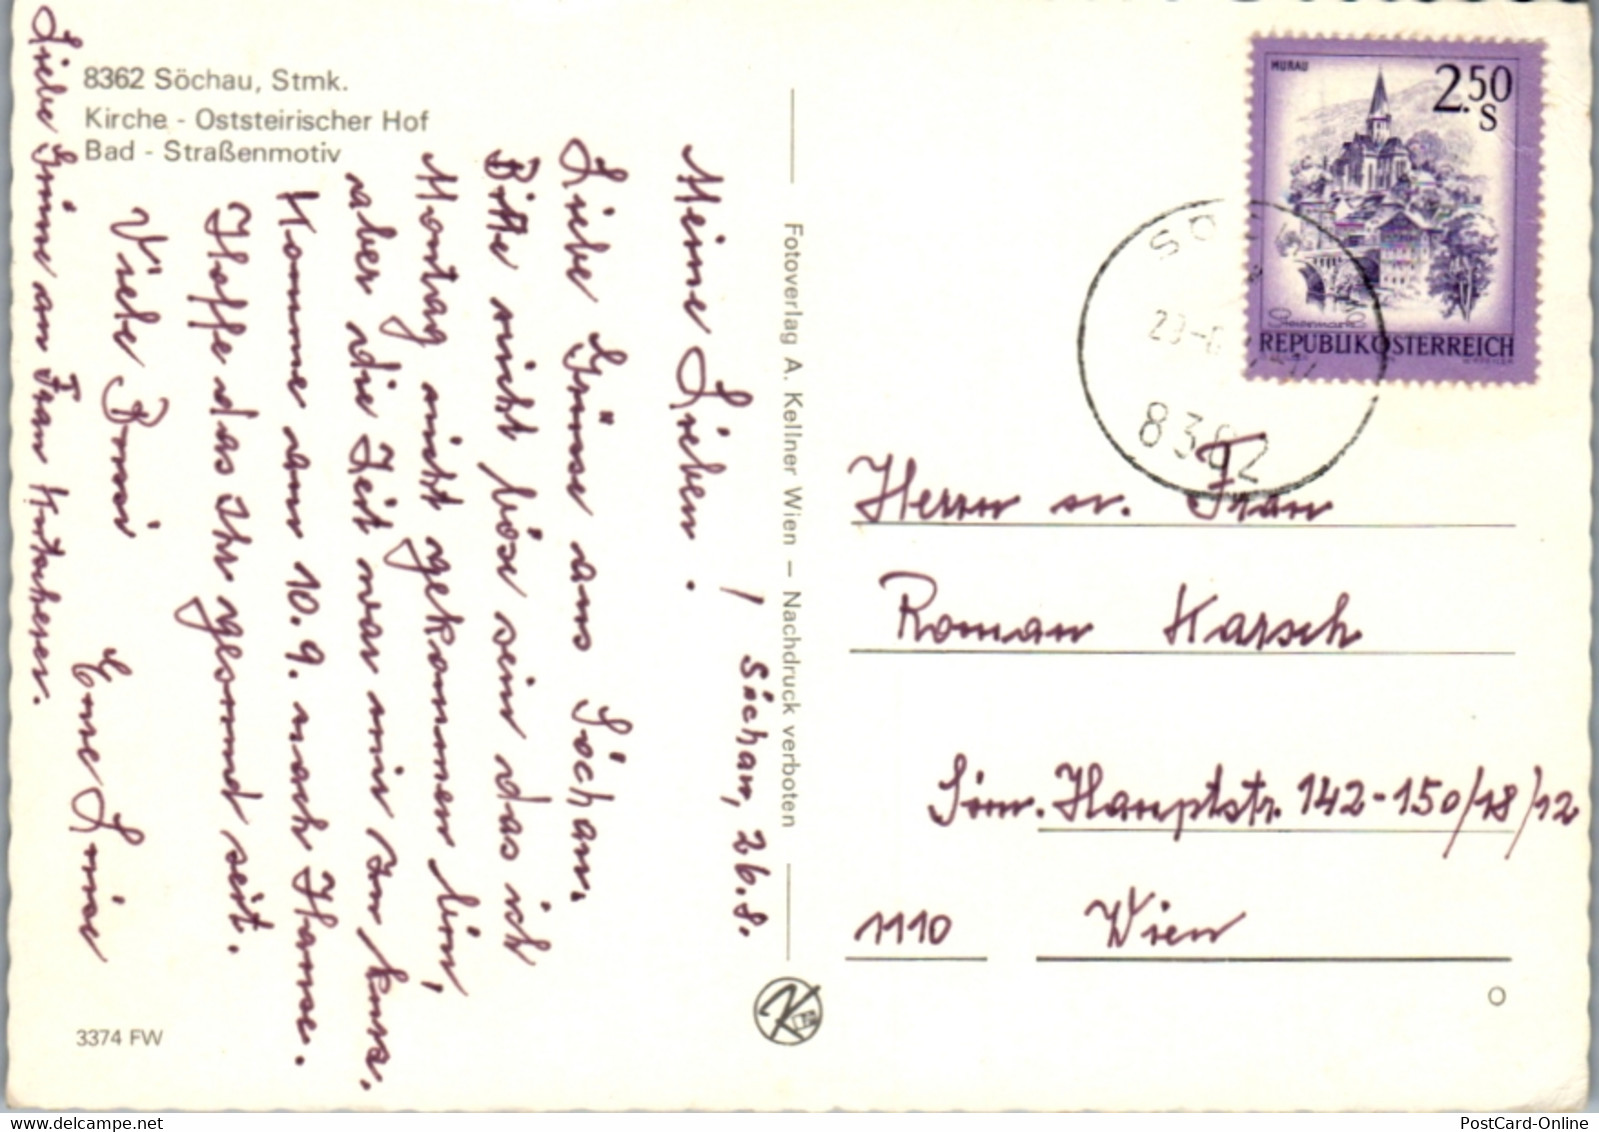 8362 Söchau, Stmk.
Kirche - Oststeirischer Hof
Bad - Straßenmotiv
Söchau, 26.8.
Meine Lieben!
Liebe Grüsse aus Söchau.
Bitte nicht böse sein das ich
Montag nicht gekommen bin,
aber die Zeit war mir zu kurz.
Komme am 10.9. nach Hause.
Hoffe das Ihr gesund seit.
Viele Bussi Eure Luise
Liebe Grüsse an Frau
3374 FW
Fotoverlag A. Kellner Wien – Nachdruck verboten
K
MURAU
2.50
S
Steiermark
REPUBLIK ÖSTERREICH
8362
Herrn u. Frau
Roman Karsch
Sim. Hauptstr. 142-150/18/12
1110 Wien
PostCard-Online